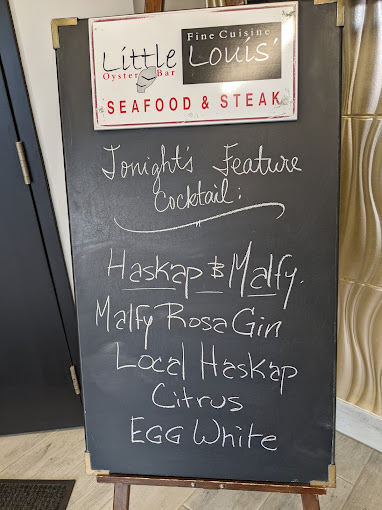 Little
Oyster Bar
Fine Cuisine
Louis'
SEAFOOD & STEAK
Tonight's Feature
Cocktail:
Haskap & Malfy.
Malfy Rosa Gin
Local Haskap
Citrus
EGG White